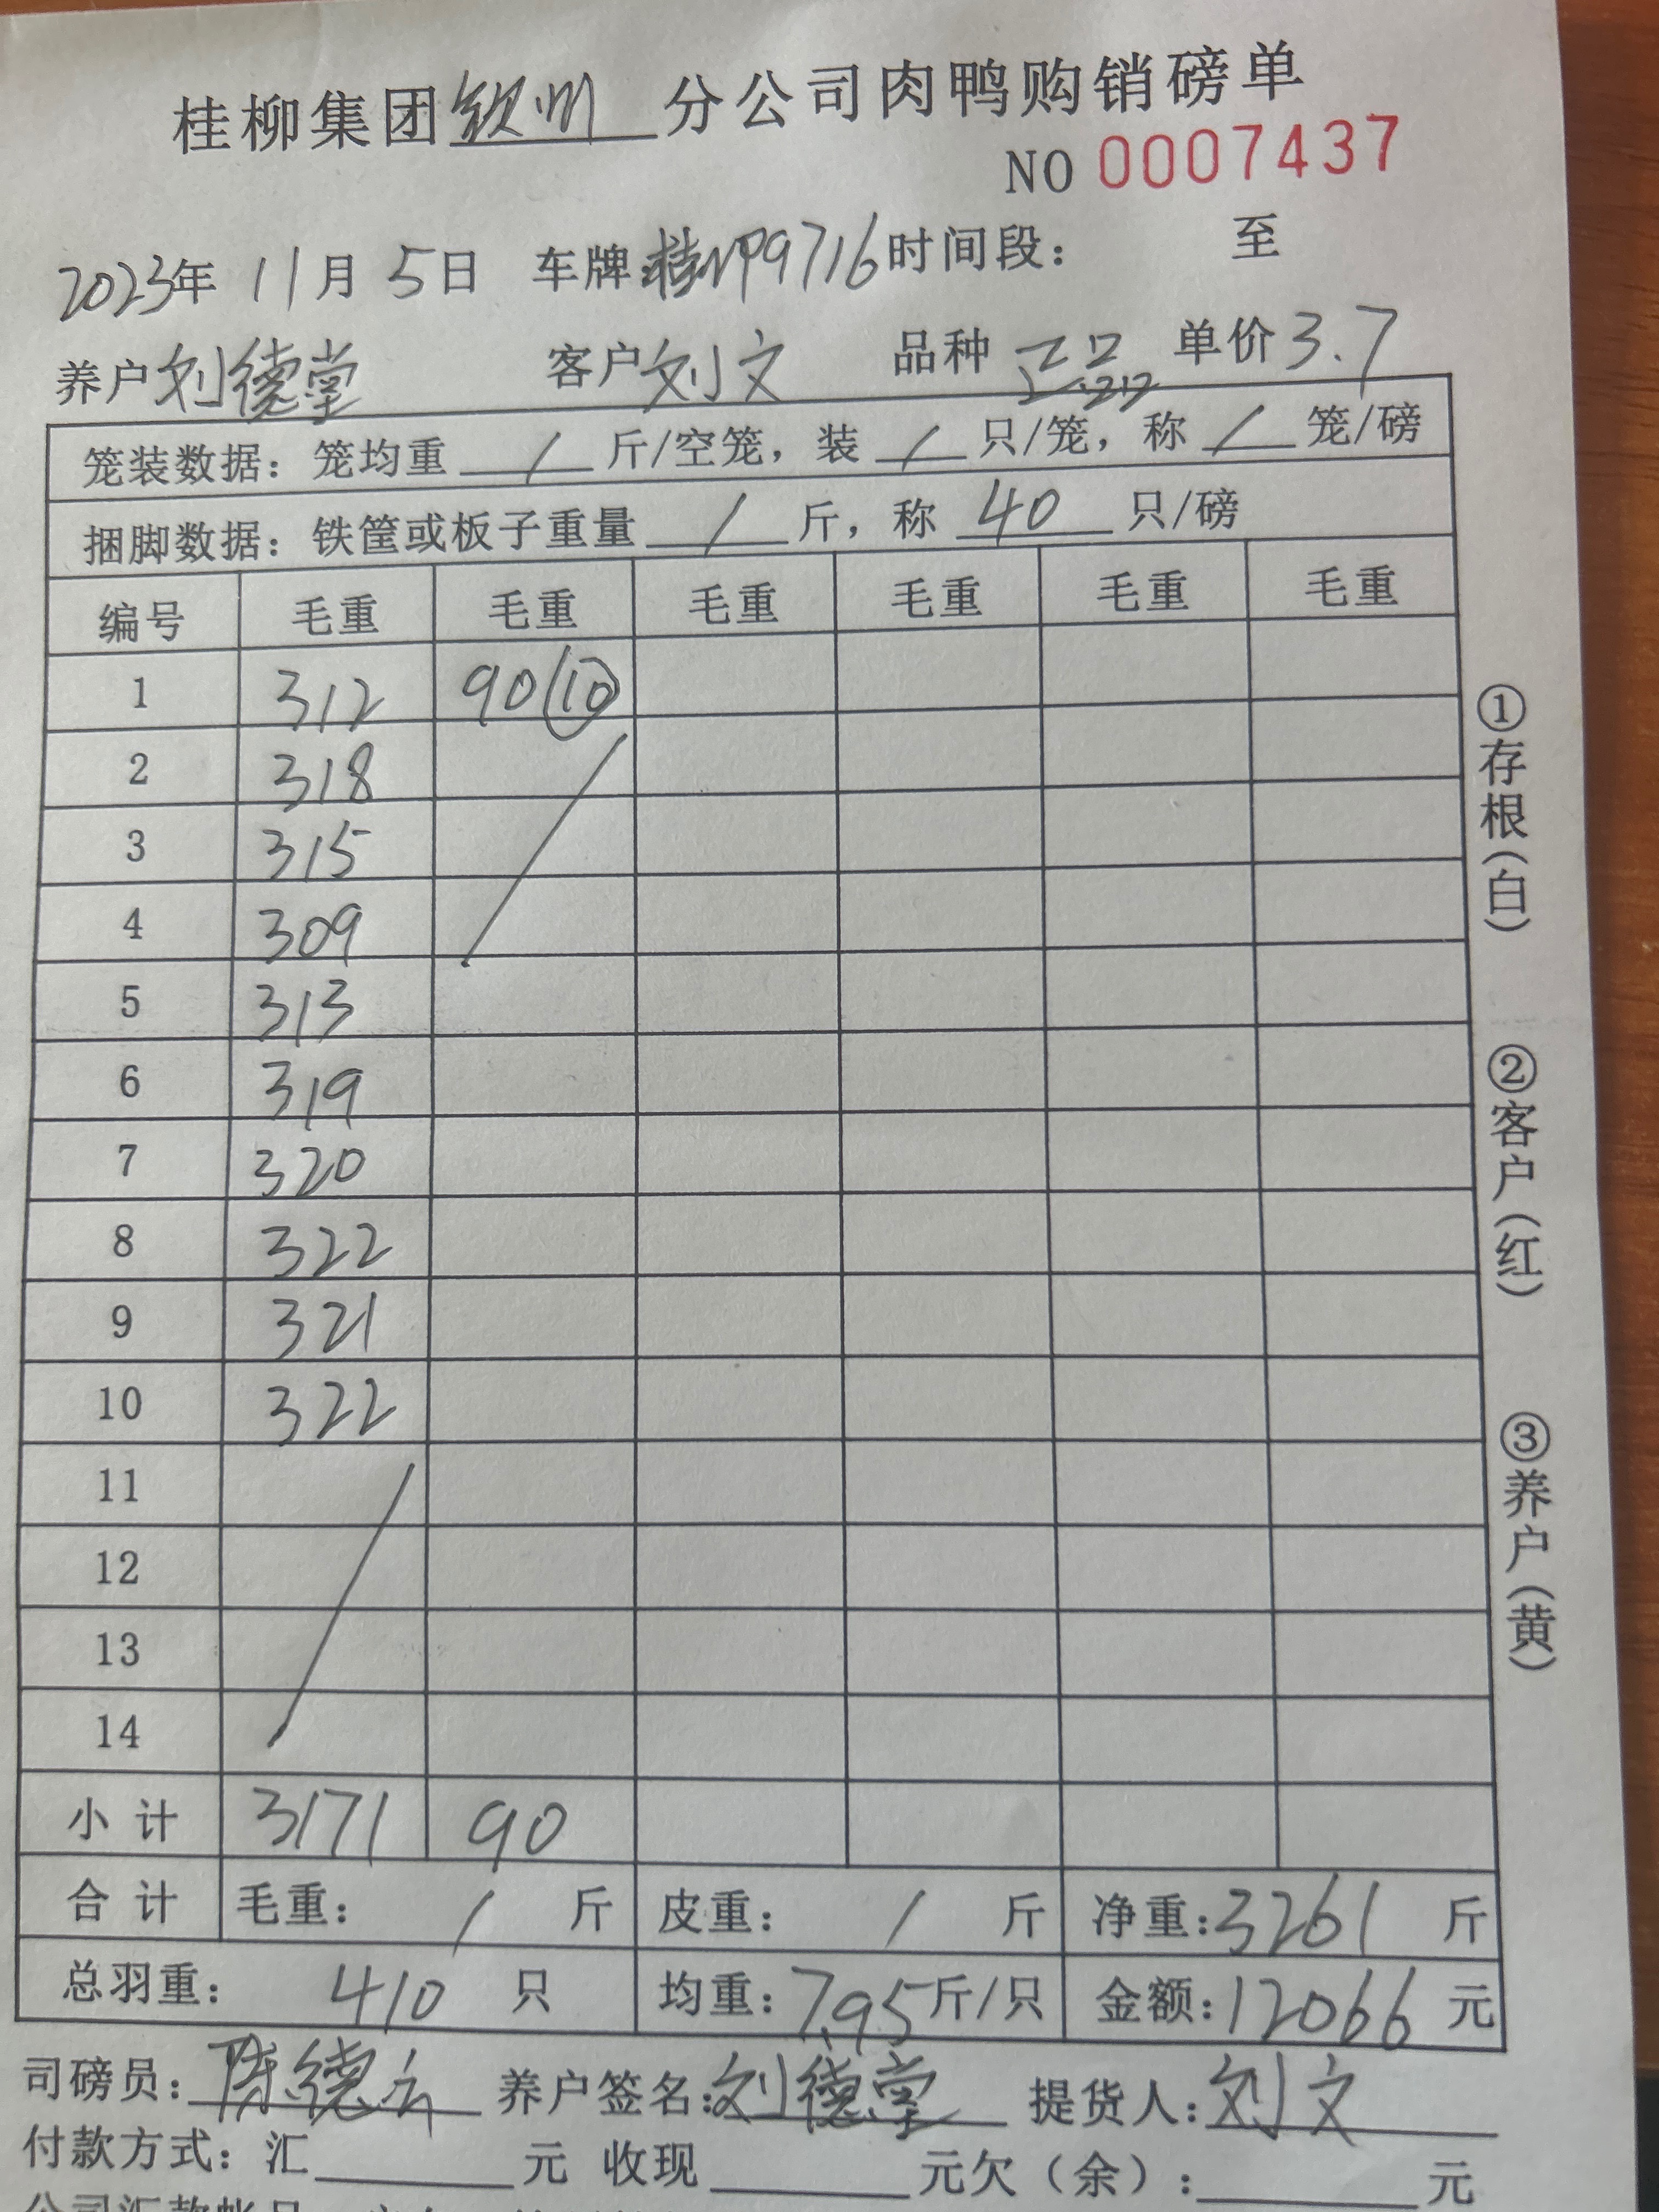 桂柳集团钦州分公司肉鸭购销磅单
NO 0007437
2023年 11月 5日 车牌:桂NP9716 时间段: 至
养户 刘德堂 客户 刘文 品种 单价 3.7
笼装数据: 笼均重 / 斤/空笼, 装 / 只/笼, 称 / 笼/磅
捆脚数据: 铁筐或板子重量 / 斤, 称 40 只/磅
编号 毛重 毛重 毛重 毛重 毛重 毛重
1 312 90 ⑩
2 318
3 315
4 309
5 313
6 319
7 320
8 322
9 321
10 322
11
12
13
14
小计 3171 90
合计 毛重: / 斤 皮重: / 斤 净重: 3261 斤
总羽重: 410 只 均重: 7.95 斤/只 金额: 12066 元
司磅员: 陈德 养户签名: 刘德堂 提货人: 刘文
付款方式: 汇 元 收现 元欠(余): 元
①存根(白)
②客户(红)
③养户(黄)